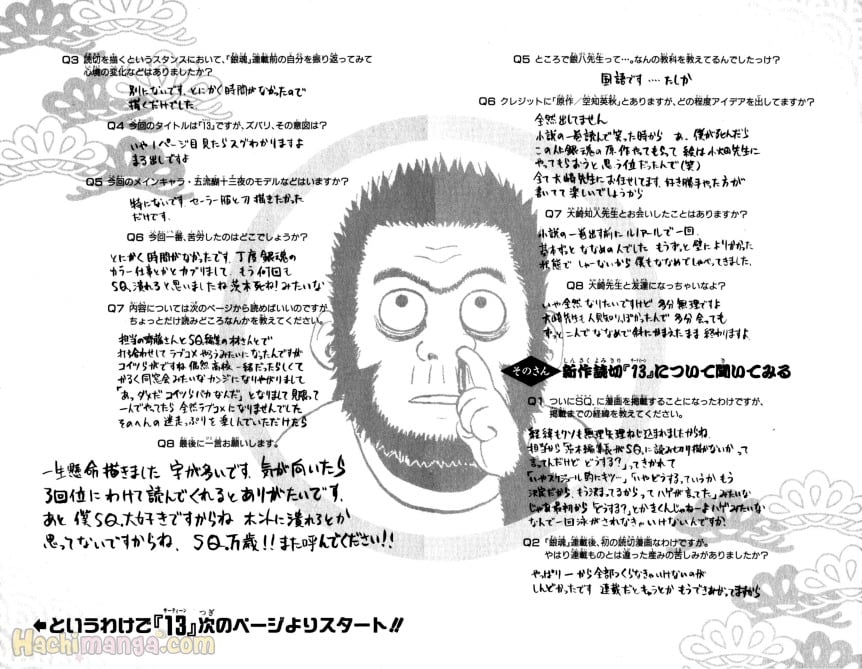 Q5 ところで銀八先生って…。なんの教科を教えてるんでしたっけ?
国語です‥‥たしか
Q6 クレジットに「原作/空知英秋」とありますが、どの程度アイデアを出してますか?
全然出してません
小説の一巻読んで笑った時から あ、僕が死んだら
この人銀魂の原作やてもらって 絵は小畑先生に
やってもらおうと思う位だったんで(笑)
全て大崎先生にお任せしてます。好き勝手やった方が
書いてて楽しいでしょうから
Q7 大崎知仁先生とお会いしたことはありますか?
小説の一巻出す前にルノアールで一回。
基本ずっとななめの人でした もうずっと壁によりかかった
状態で しゃーないから僕もななめでしゃべってきました。
Q8 大崎先生と友達になっちゃいなよ?
いや全然なりたいですけど 多分無理ですよ
大崎先生も人見知りっぽかったんで 多分会っても
ずっと二人でななめで斜にかまえたまま終わりますよ
そのさん 新作読切『13』について聞いてみる
しんさくよみきり サーティーン き
Q1 ついにSQ.に漫画を掲載することになったわけですが、
掲載までの経緯を教えてください。
経緯もクソも無理矢理ねじ込まれましたからね
担当から「茨木編集長がSQ.に読み切り描かないかって
言ってんだけど どうする?」ってきかれて
「いやスケジュール的にキツ…」「いやどうするっていうか もう
決定だから、もう決まってるからってハゲが言てた」みたいな
じゃあ最初から「どうする?」とかきくんじゃねーよハゲみたいな
なんで一回泳がされなきゃいけないんですか?
Q2 「銀魂」連載後、初の読切漫画なわけですが。
やはり連載ものとは違った産みの苦しみがありましたか?
やっぱり一から全部つくらなきゃいけないのが
しんどかったです 連載だとキャラとか もうできあがってますから
Q3 読切を描くというスタンスにおいて、「銀魂」連載前の自分を振り返ってみて
心境の変化などはありましたか?
別にないです。とにかく時間がなかったので
描くだけでした。
Q4 今回のタイトルは「13」ですが、ズバリ、その意図は?
いや1ページ目見たらスグわかりますよ
まる出しですよ
Q5 今回のメインキャラ・五流醐十三夜のモデルなどはいますか?
特にないです。セーラー服と刀 描きたかった
だけです。
Q6 今回一番、苦労したのはどこでしょうか?
とにかく時間がなかったです。丁度銀魂の
カラー仕事とかとカブりまして、もう何回も
SQ.潰れろと思いましたね 茨木死ね!みたいな
Q7 内容については次のページから読めばいいのですが、
ちょっとだけ読みどころなんかを教えてください。
担当の齊藤さんとSQ.編集の林さんとで
打ち合わせして ラブコメやろうみたいになったんですが
コイツらがですね 偶然高校一緒だったらしくて
かるく同窓会みたいなカンジになりやがりまして
「あっダメだコイツらバカなんだ」となりまして見限って
一人でやってたら 全然ラブコメになりませんでした
そのへんの迷走っぷりを楽しんでいただけたら
Q8 最後に一言お願いします。
一生懸命描きました 字が多いです。気が向いたら
3回位にわけて読んでくれるとありがたいです。
あと 僕SQ.大好きですからね ホントに潰れろとか
思ってないですからね、SQ.万歳!!また呼んでください!!
←というわけで『13』次のページよりスタート!!
サーティーン つぎ
Hachimanga.com